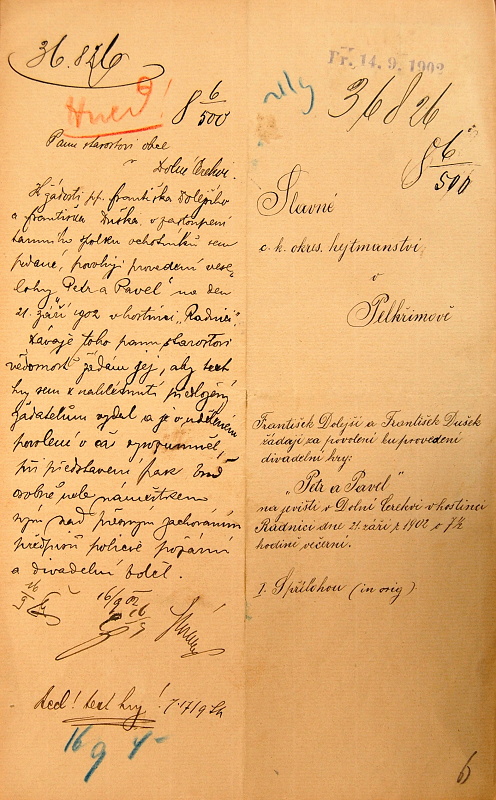 36.826
Hned!
8 6/500
Panu starostovi obce
v Dolní Cerekvi.
K žádosti pp. Františka Dolejšího
a Františka Duška, v zastoupení
tamního spolku ochotníků sem
podané, povoluji provedení vese-
lohry "Petr a Pavel" na den
21. září 1902 v hostinci "Radnici".
Dávaje toho panu starostovi
vědomost žádám jej, aby text
hry sem k nahlédnutí předložený
žadatelům vydal a je o uděleném
povolení v čas vyrozuměl,
při představení pak buď
osobně nebo náměstkem
svým nad přesným zachováním
předpisů policie požární
a divadelní bděl.
16/9
16/9 02
16/9
Red! text hry! 17/9
16 9
Pr. 14. 9. 1902
36826
8 6/500
Slavné
c. k. okres. hejtmanství
v
Pelhřimově
František Dolejší a František Dušek
žádají za povolení ku provedení
divadelní hry:
"Petr a Pavel"
na jevišti v Dolní Cerekvi v hostinci
Radnici dne 21. září r. 1902 o 7½
hodině večerní.
1. S přílohou (in orig)
6